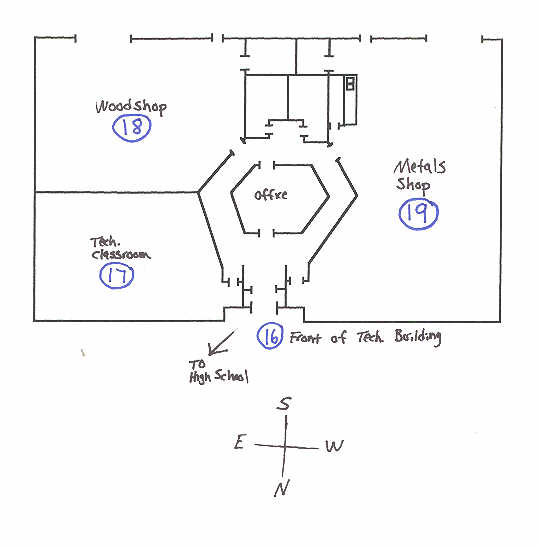 Woodshop
18
Metals
Shop
19
Office
Tech.
Classroom
17
16 Front of Tech Building
To
High School
S
E W
N